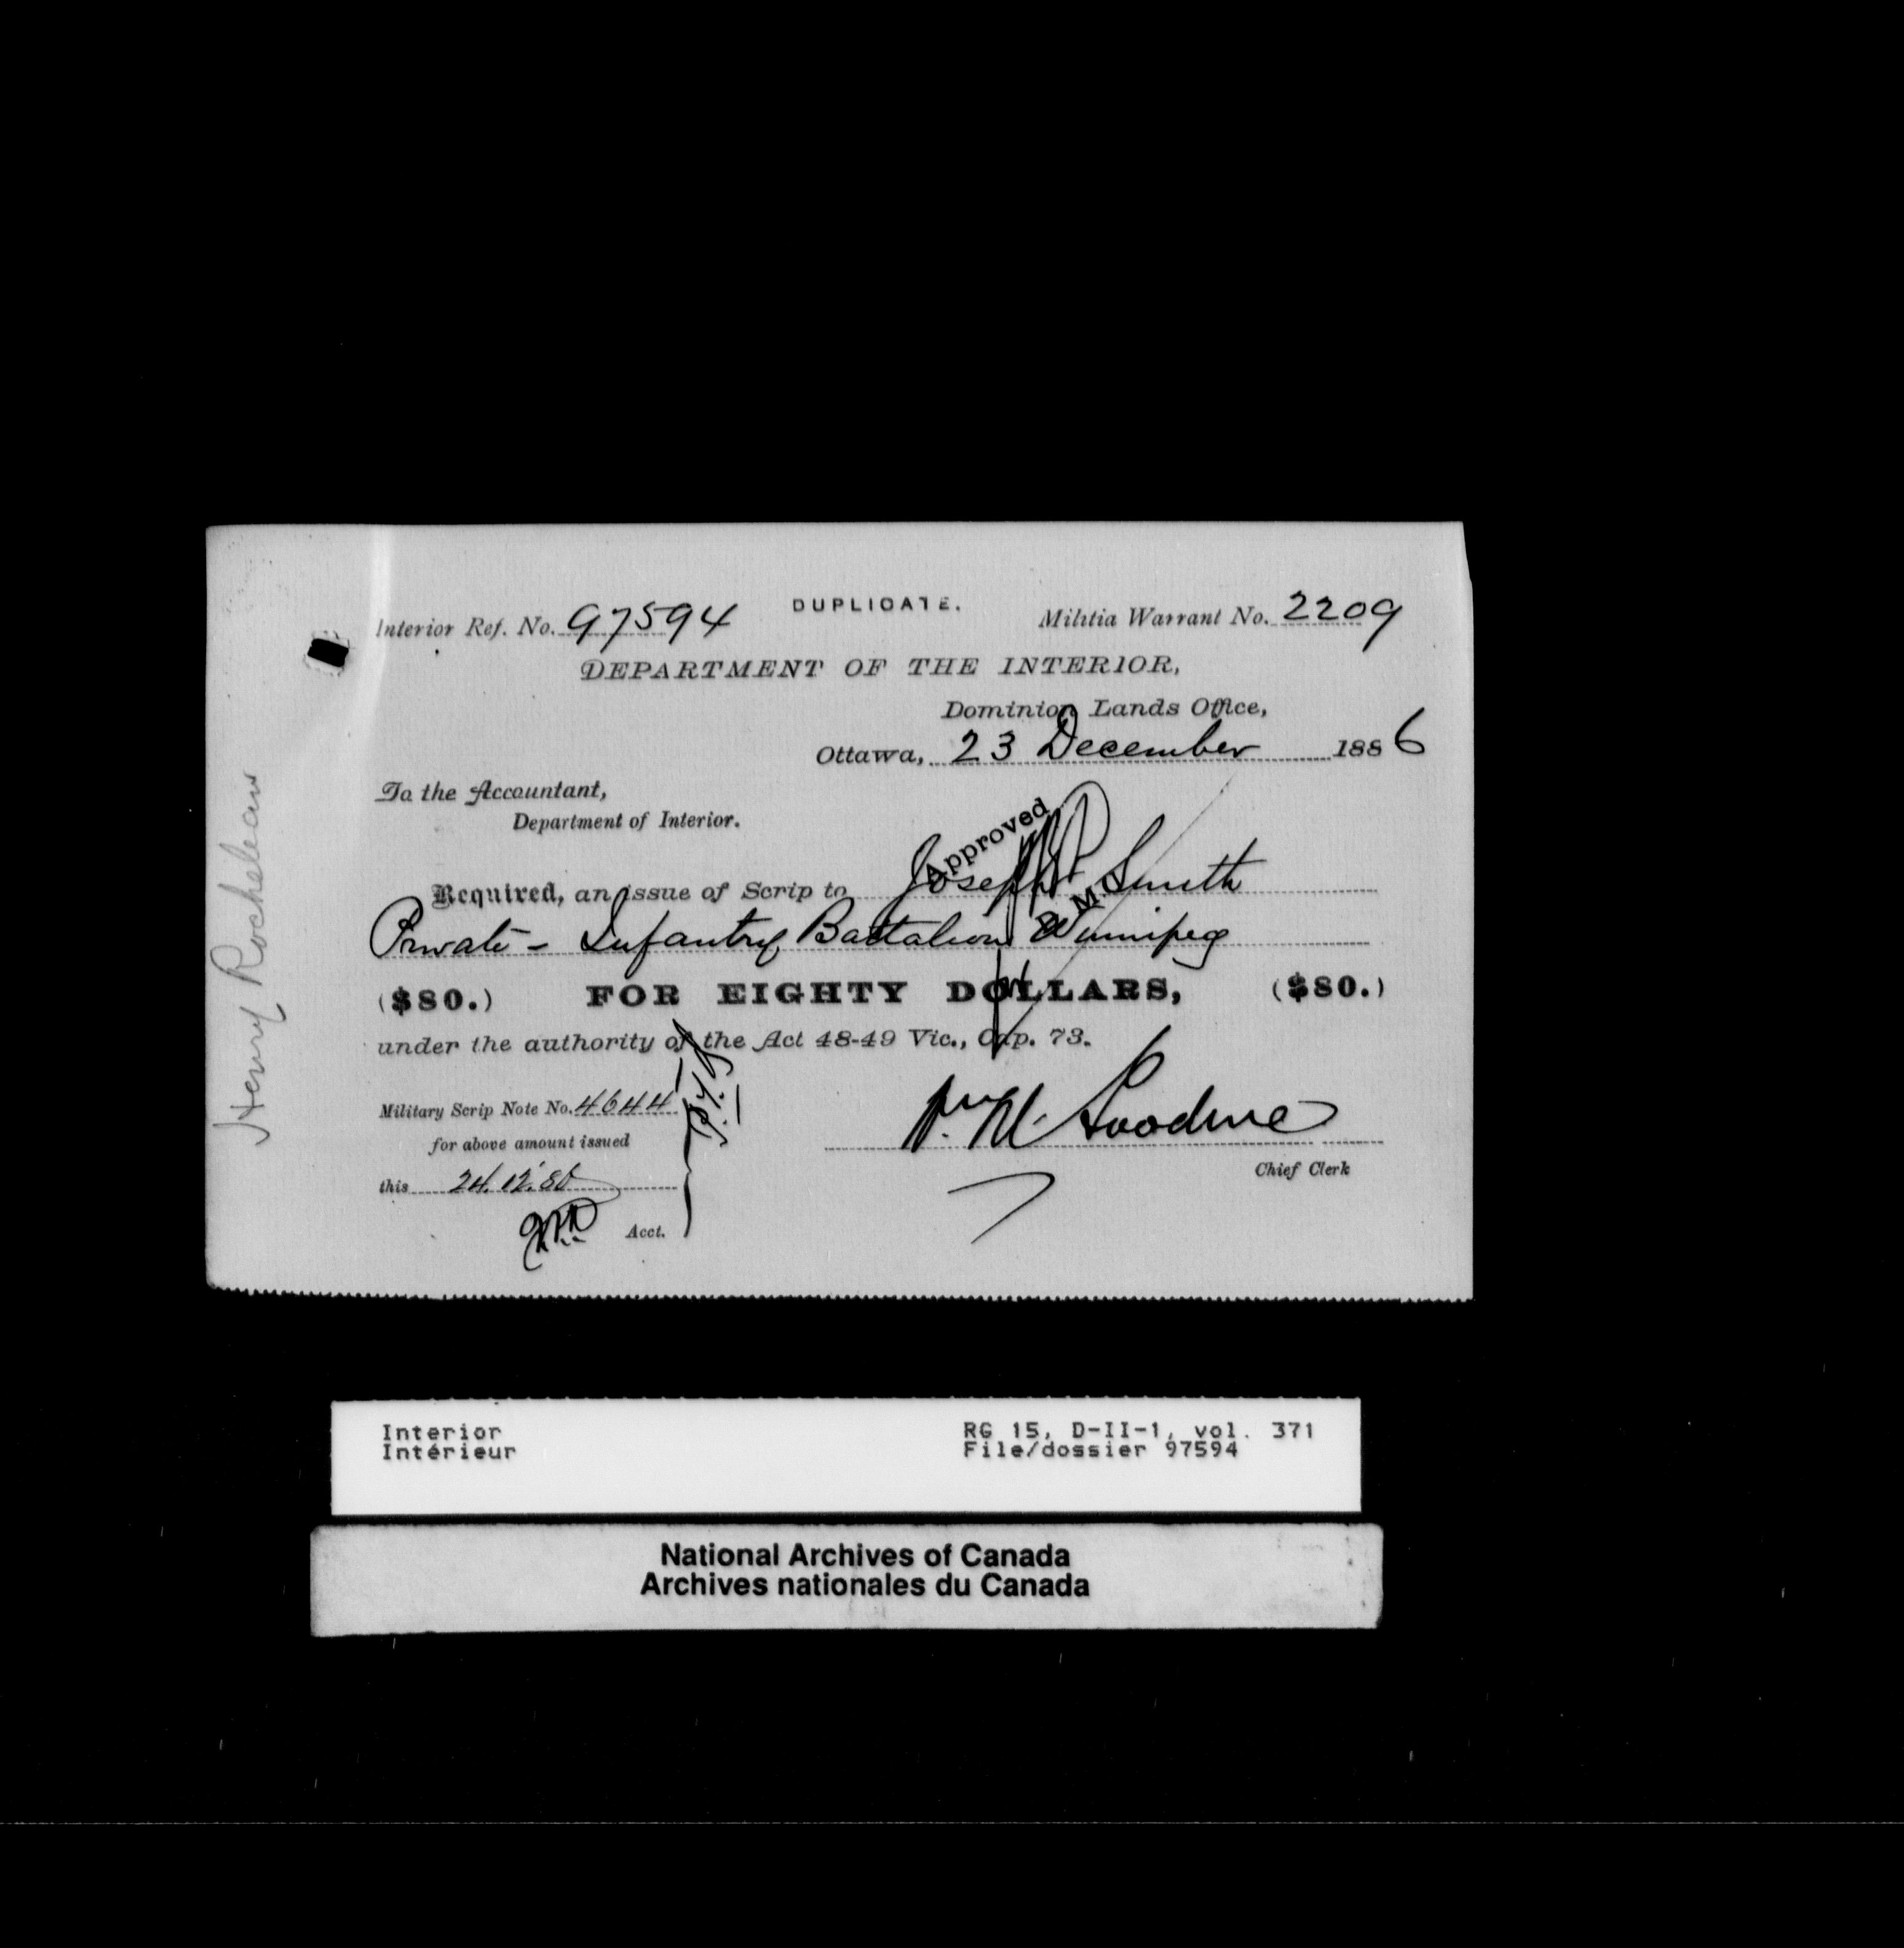 DUPLICATE.
Interior Ref. No. 97594
Militia Warrant No. 2209
DEPARTMENT OF THE INTERIOR,
Dominion Lands Office,
Ottawa, 23 December 1886
To the Accountant,
Department of Interior.
Approved
Required, an issue of Scrip to Joseph Smith
Private - Infantry Battalion Winnipeg
($80.) FOR EIGHTY DOLLARS, ($80.)
under the authority of the Act 48-49 Vic., Cap. 73.
Military Scrip Note No. 4644
for above amount issued
this 24.12.86
Acct.
Chief Clerk
Henry Rocheleau
Interior
Intérieur
RG 15, D-II-1, vol. 371
File/dossier 97594
National Archives of Canada
Archives nationales du Canada